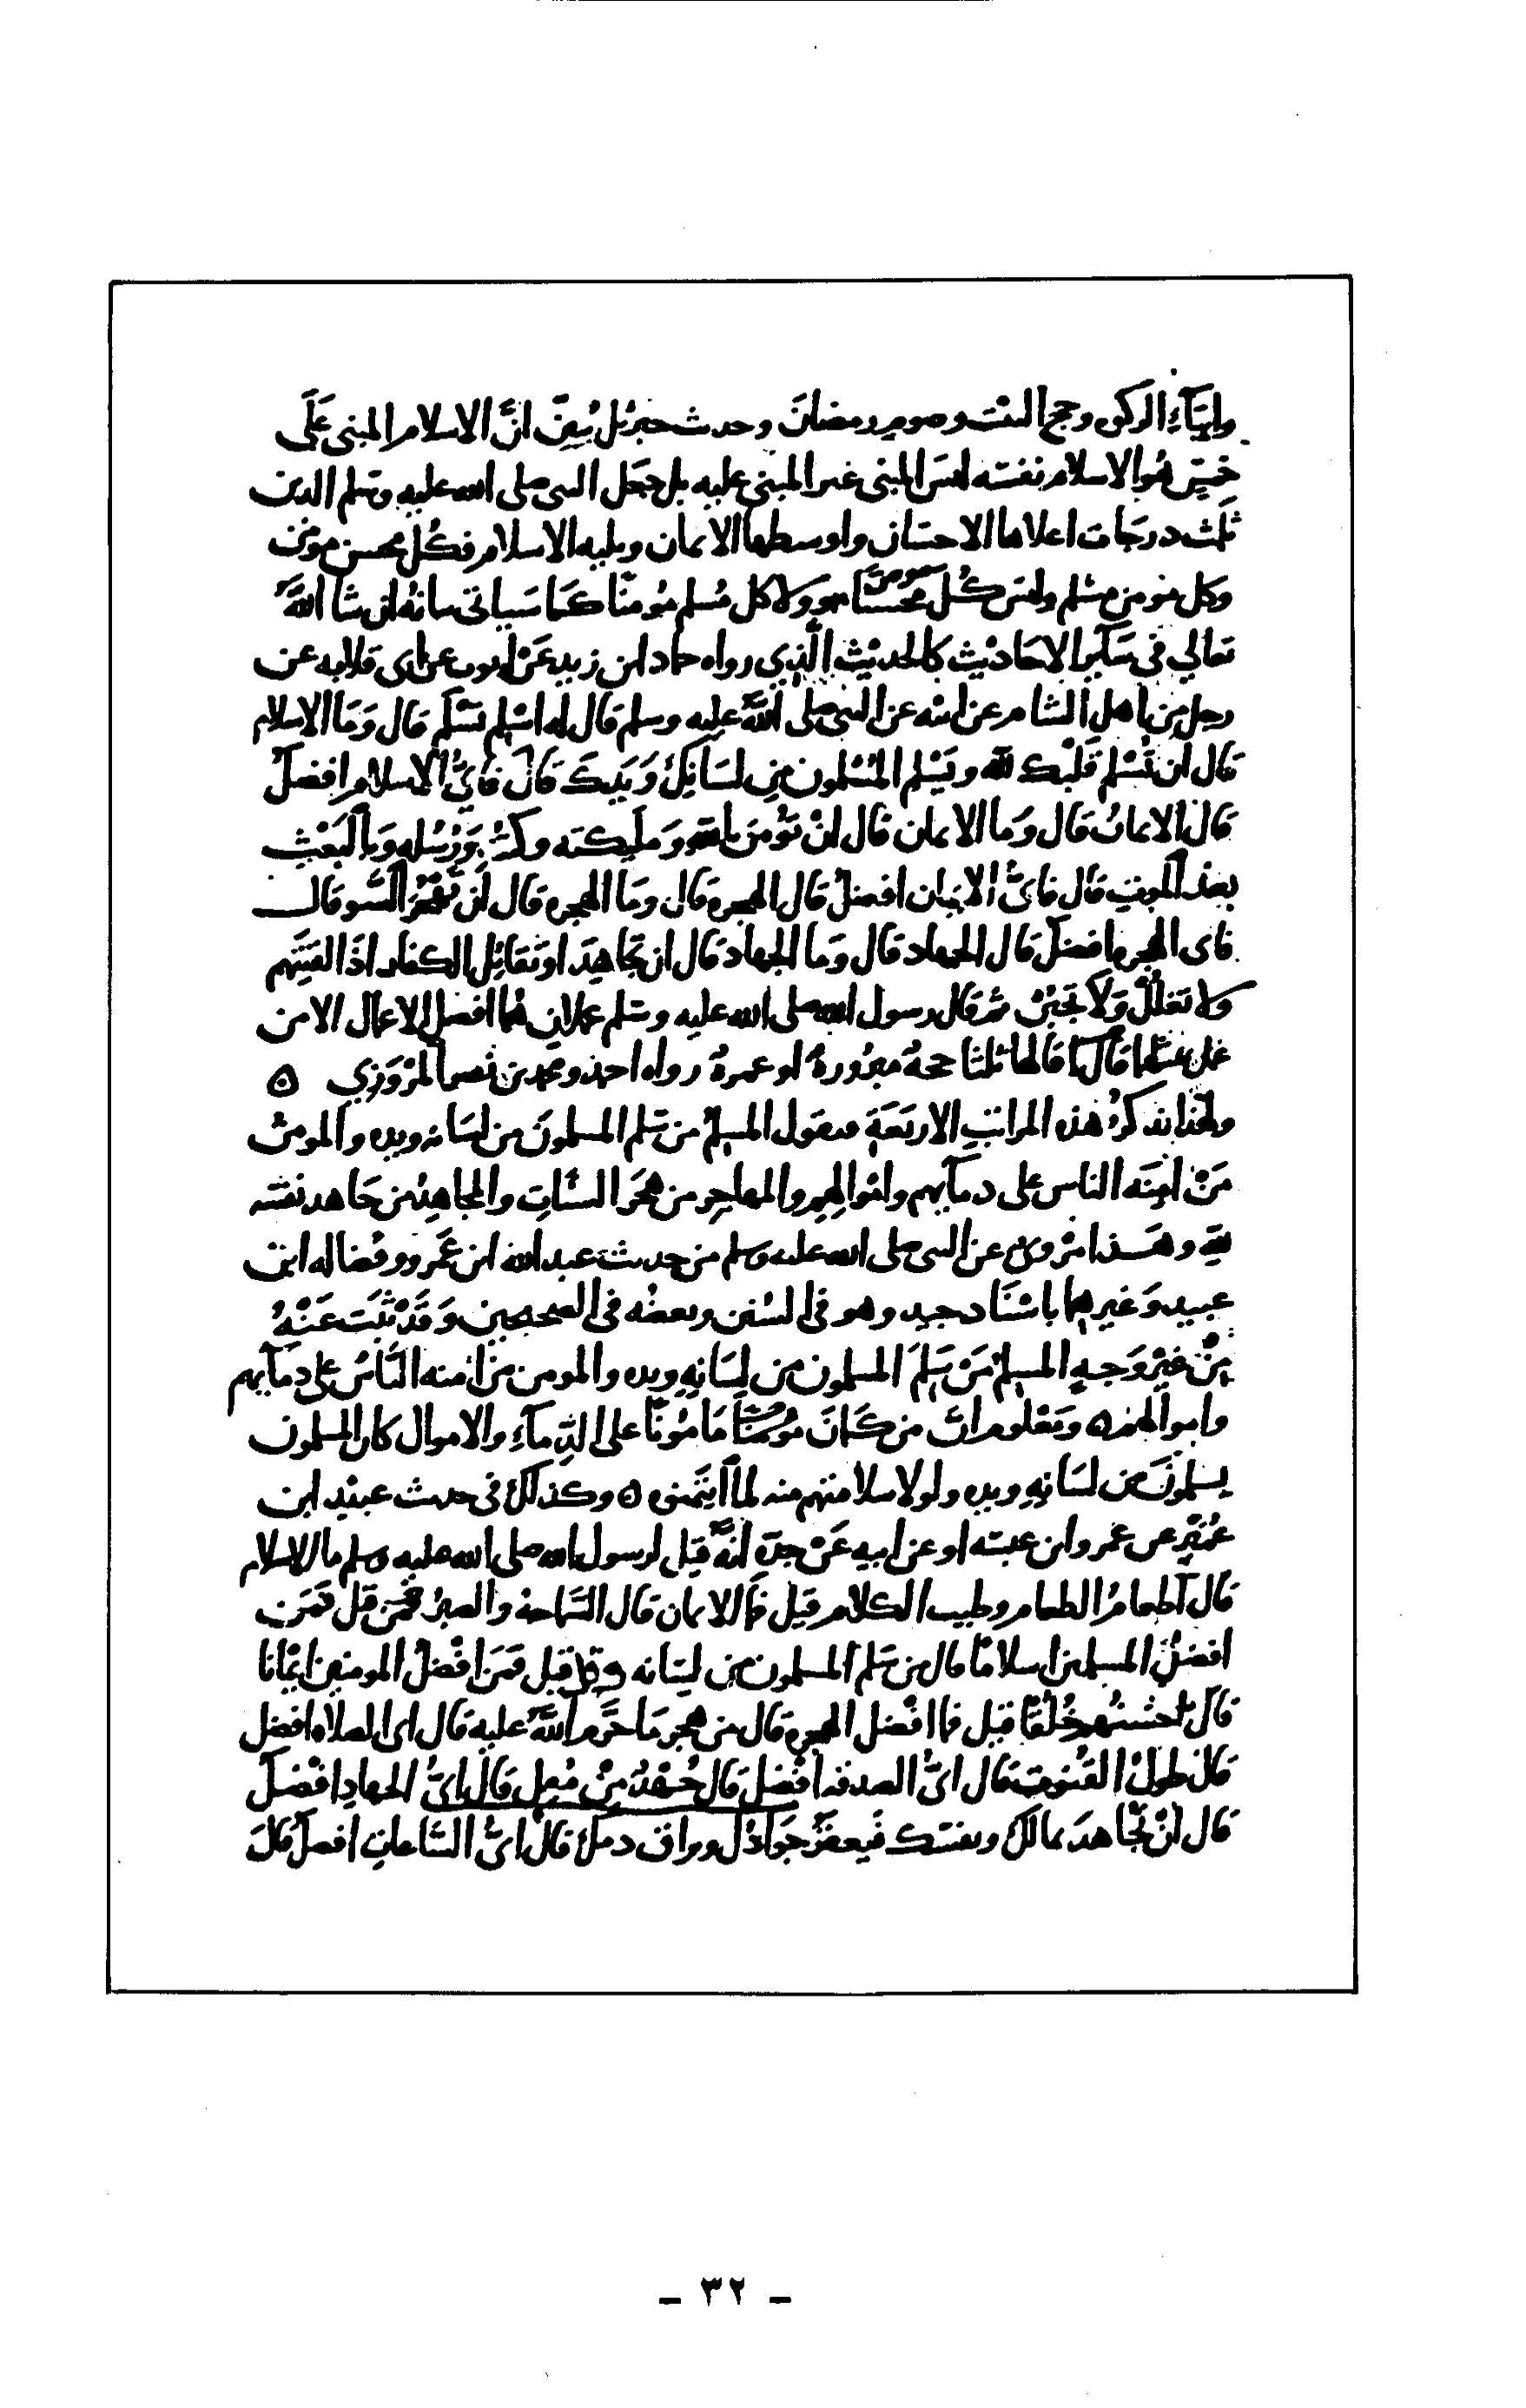 وايتآءِ الزكوه وحج البيت وصوم رمضانَ وحديث جبريل يُبيّن انَّ الاسلام المبنى عَلَى
خمسٍ هُوَ الاسلام نفسه ليسَ المبنى غير المبنى عليه بل جعَل النبى صلى الله عليه وسلم الدين
ثلث درجَات اعلاها الاحسَان واوسطها الايمان ويليه الاسلام فكُل محسن مومن
وكل مومن مسْلم وليسَ كُل مومن محْسنًا ولا كل مُسلم مُومنًا كما سَياتى بيانه ان شا اللهُ
تعالي فى سَآير الاحَاديْث كالحديْث الَّذي رواه حماد ابن زيد عَنْ ايوب عن ابى قلابه عن
رجل مِن اهل الشام عن ابيه عن النبى صلى اللهُ عليه وسلم قال له اسْلِم تَسْلَم قال وَمَا الاسلام
قال ان تُسْلم قَلْبك لله ويَسْلم المُسْلمون مِن لسَانِكَ وَيَدِكَ قالَ فايُّ الاسلام افضلُ
قال الايمانُ قال وَما الايمان قال انْ تؤمنَ بالله وَملَيكته وكتُبه وَرُسُله وَبالبَعْث
بعد الموت قال فايُّ الايمان افضلُ قال الهجره قال ومَا الهجره قال أن تهجُر السُّو قال
فاى الهجره افضلُ قال الجهاد قال وَما الجهاد قال ان تجاهِدَ او تقاتِل الكفار اذا لقيتَهم
ولا تغلُلْ وَلَا تجبُنْ ثم قال رسول الله صلى الله عليه وسَلم عملانِ هُما افضل الاعمال الا من
عمل بمثلهما قالها ثلثا حجةٌ مبرُورةٌ او عمرةٌ رواه احمد ومحمد بن نصر المَرْوَزي ه
ولهذا يذكرُ هذه المراتبِ الاربَعَةِ فيقول المسلمُ من سَلم المسلمونَ من لسَانه ويده والمومنُ
مَنْ امِنَه الناس على دمآيهم واموالهِم والمهاجِر من هجَر السيّاتِ والمجاهِدُ من جَاهد نفسَه
للهِ وهَذا مَرْوىّ عن النبى صلى الله عليه وسلم من حديث عبد الله ابن عَمرو وفضاله ابن
عبيد وَغيرهما باسْنَاد جيد وهو فى السُنن وبعضُه فى الصّحيحين وَقدْ ثبَتَ عَنْهُ
مِنْ غيْر وَجهٍ المسلِمُ مَنْ سَلِمَ المسلمون من لِسَانهِ ويده والمومن من اَمنه النَّاسُ على دمَآيهم
واموالهم ه ومَعْلوم انّ من كَانَ مَامُونًا على الدِّمآءِ والاموال كان المسلمون
يسلمُونَ من لسَانهِ ويده ولولا سلامتهم منه لمَا ايتمنوه ه وكذلك فى حديث عبيْد ابن
عُمَيْرٍ عن عمرو ابن عبسَه او عن ابيه عَنْ جدّه انَّهُ قيل لرسول الله صلى الله عليه وسلم ما الاسلام
قال اطعامُ الطعام وطيب الكلام قيل فما الايمان قال السَّماحة والصبرُ قيل فمَن
افضلُ المسلمين اسلامًا قال من سَلِم المسلمون من لسَانه ويده قيل فمَن افْضلُ المومنين ايْمَانا
قالَ احْسنُهم خُلُقًا قيل فما افْضل الهجرة قال من هجر مَا حَرَّم اللَّهُ عليه قال اى الصلاه افضل
قال طولُ القنُوت قال ايُّ الصدقه افْضل قال جُهْدٌ مِنْ مُقِل قالَ ايُّ الجهادِ افْضلُ
قال انْ تُجاهدَ بمالك ونفسك فيعقرُ جَوَادُك ويراق دمك قال ايُّ السَّاعاتِ افضلُ قالَ
- ٣٢ -